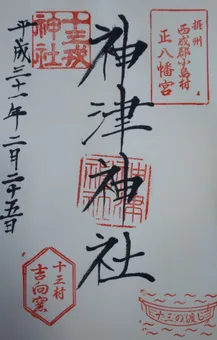 摂州
西成郡小島村
正八幡宮
神津神社
十三戎
神社
平成三十一年二月二十五日
十三村
吉向窯
十三の渡